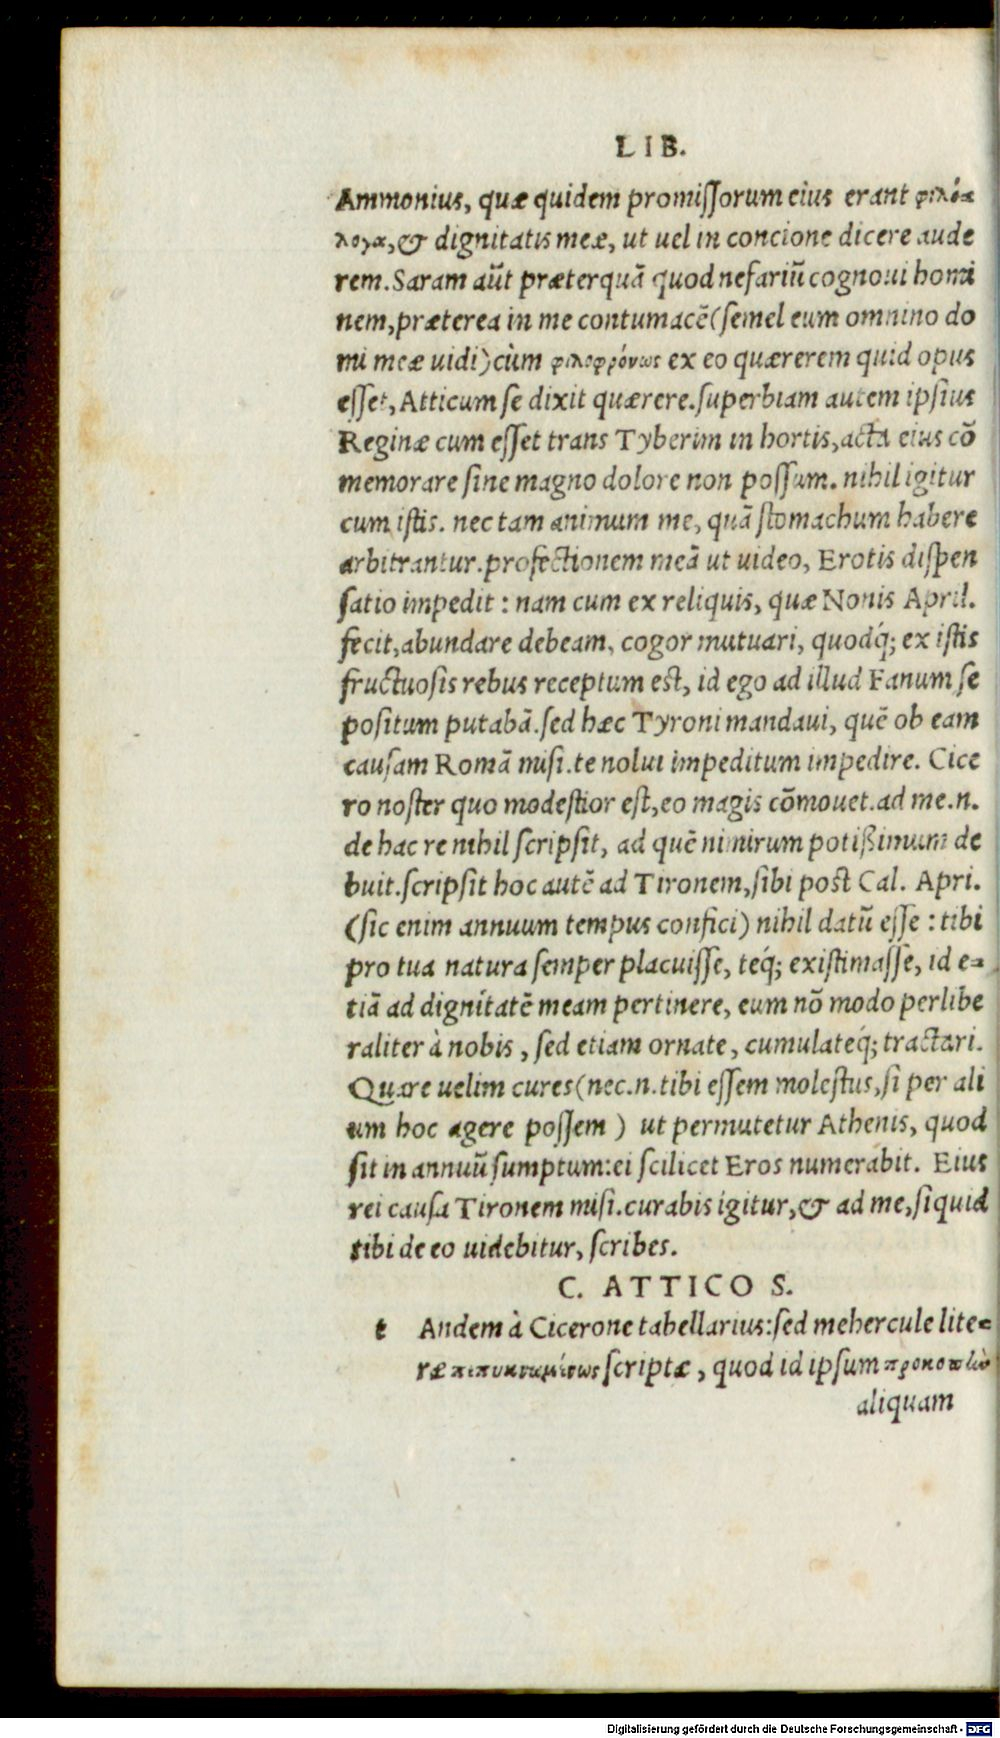 LIB.
Ammonius, quæ quidem promissorum eius erant φιλό-
λογα, & dignitatis meæ, ut uel in concione dicere aude
rem. Saram aũt præterquã quod nefariũ cognoui homi
nem, præterea in me contumacẽ (semel eum omnino do
mi meæ uidi) cùm φιλοφρόνως ex eo quærerem quid opus
esset, Atticum se dixit quærere. superbiam autem ipsius
Reginæ cum esset trans Tyberim in hortis, acta eius cõ
memorare sine magno dolore non possum. nihil igitur
cum istis. nec tam animum me, quã stomachum habere
arbitrantur. profectionem meã ut uideo, Erotis dispen
satio impedit : nam cum ex reliquis, quæ Nonis April.
fecit, abundare debeam, cogor mutuari, quodq́; ex istis
fructuosis rebus receptum est, id ego ad illud Fanum se
positum putabã. sed hæc Tyroni mandaui, quẽ ob eam
causam Romã misi. te nolui impeditum impedire. Cice
ro noster quo modestior est, eo magis cõmouet. ad me .n.
de hac re nihil scripsit, ad quẽ nimirum potißimum de
buit. scripsit hoc autẽ ad Tironem, sibi post Cal. Apri.
(sic enim annuum tempus confici) nihil datũ esse : tibi
pro tua natura semper placuisse, teq́; existimasse, id e-
tiã ad dignitatẽ meam pertinere, eum nõ modo perlibe
raliter à nobis, sed etiam ornate, cumulateq́; tractari.
Quare uelim cures (nec .n. tibi essem molestus, si per ali
um hoc agere possem) ut permutetur Athenis, quod
sit in annuũ sumptum: ei scilicet Eros numerabit. Eius
rei causa Tironem misi. curabis igitur, & ad me, siquid
tibi de eo uidebitur, scribes.
C. ATTICO S.
t Andem à Cicerone tabellarius: sed mehercule lite-
ræ scriptæ, quod id ipsum
aliquam
Digitalisierung gefördert durch die Deutsche Forschungsgemeinschaft - DFG